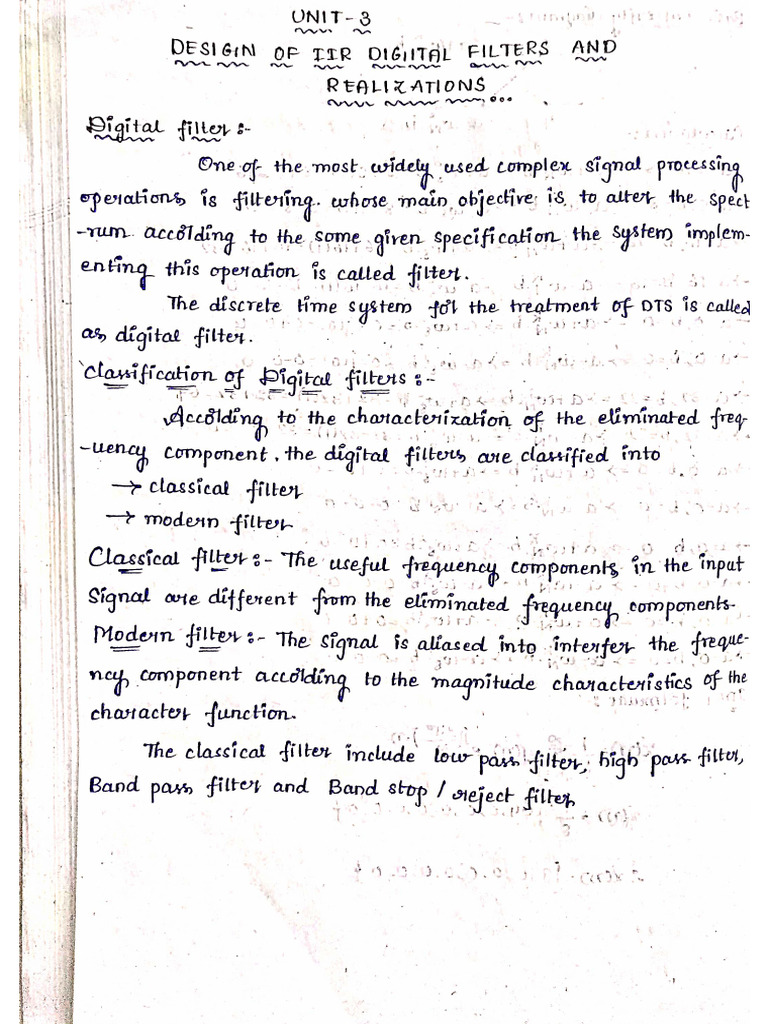 UNIT-3
DESIGIN OF IIR DIGIITAL FILTERS AND
REALIZATIONS...
Digital filter:-
One of the most widely used complex signal processing
operations is filtering. whose main objective is to alter the spect
-rum according to the some given specification the system implem-
enting this operation is called filter.
The discrete time system for the treatment of DTS is called
as digital filter.
Classification of Digital filters:-
According to the characterization of the eliminated freq-
-uency component, the digital filters are classified into
→ classical filter
→ modern filter
Classical filter:- The useful frequency components in the input
Signal are different from the eliminated frequency components.
Modern filter:- The signal is aliased into interfer the freque-
ncy component according to the magnitude characteristics of the
character function.
The classical filter include low pass filter, high pass filter,
Band pass filter and Band stop / reject filter